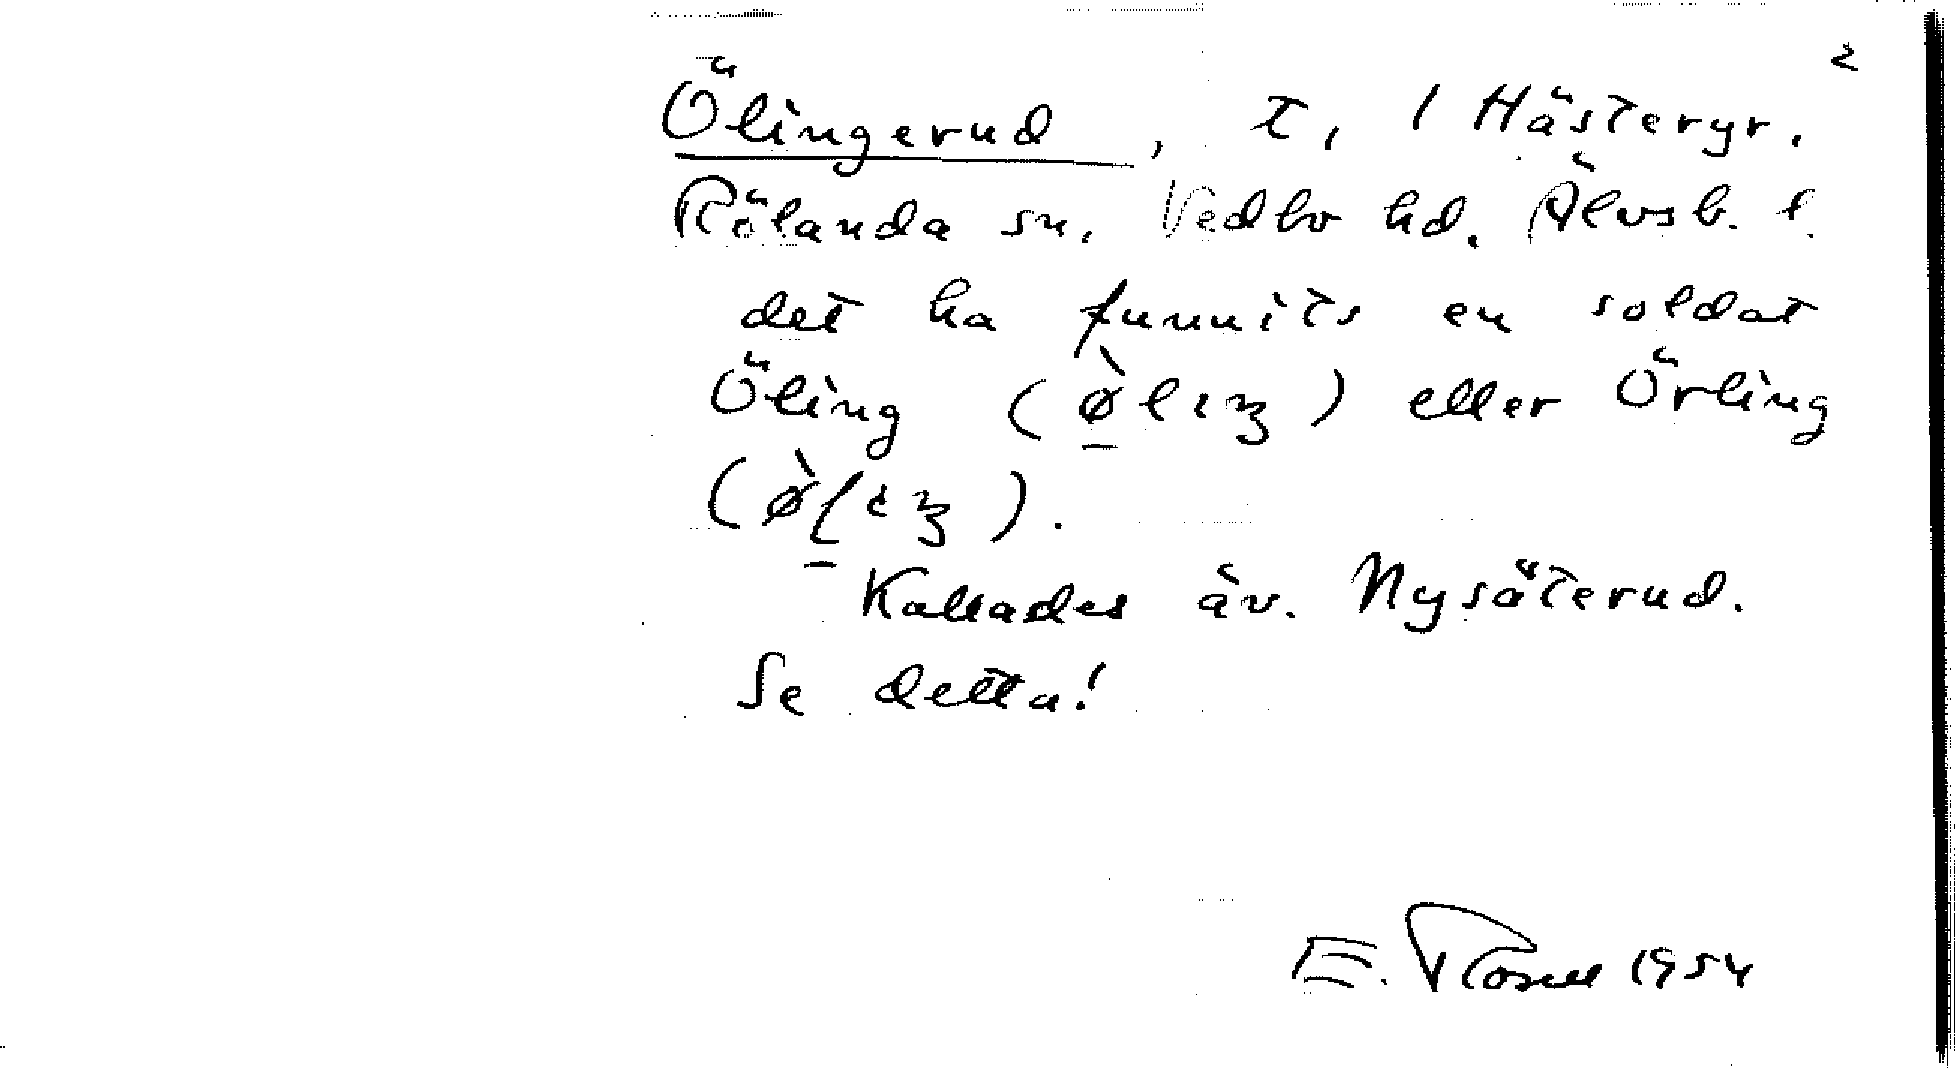 2
Ölingerud, t, 1 Hästeryr.
Rölanda sn. Vedbo hd. Älvsb. l.
det ha funnits en soldat
Öling (ø̀lıŋ) eller Örling
(ø̀ɭıŋ).
Kallades äv. Nysäterud.
Se detta!
E. Rosell 1954